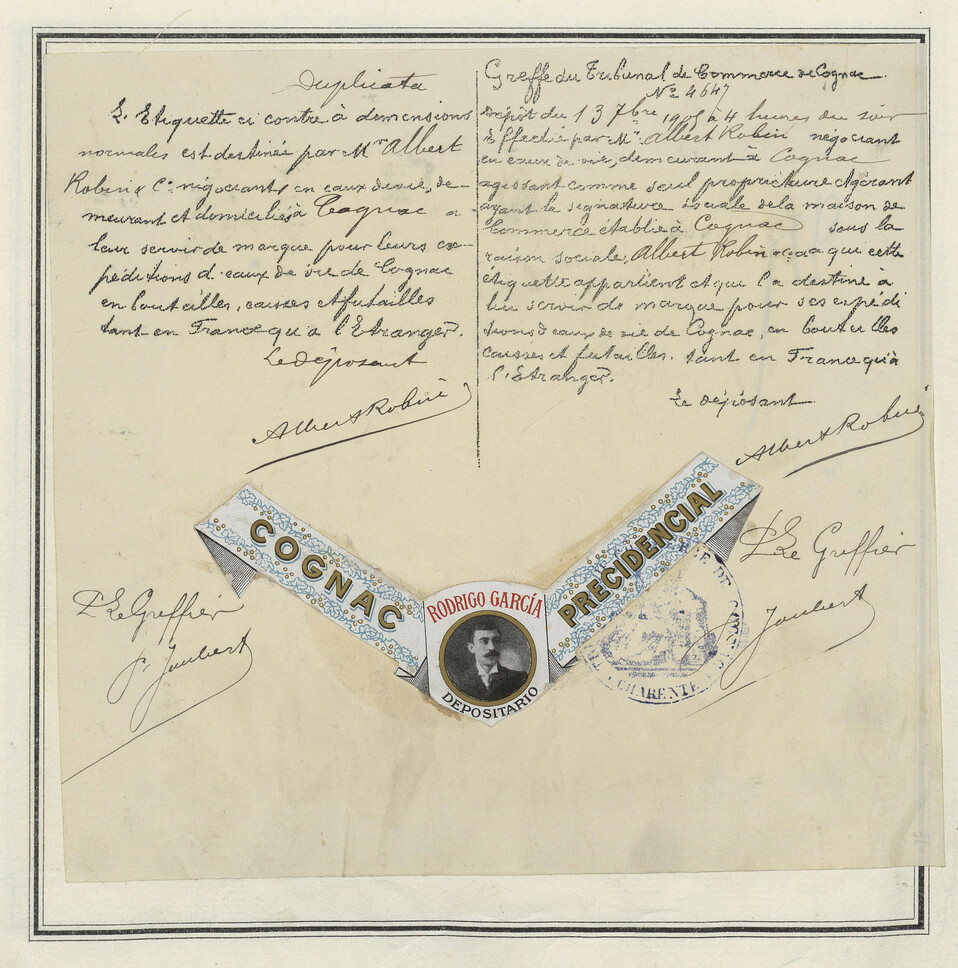 Duplicata
L'Etiquette ci contre à dimensions
normales est destinée par Mr Albert
Robin & Cie négociants en eaux de vie, de-
meurant et domiciliés à Cognac a
leur servir de marque pour leurs ex-
péditions d'eaux de vie de Cognac
en bouteilles, caisses et futailles
tant en France qu'a l'Etranger.
Le déposant
Albert Robin
Greffe du Tribunal de Commerce de Cognac.
No 4647
Dépôt du 13 7bre 1905 à 4 heures du soir
Effectué par Mr Albert Robin négociant
en eaux de vie, demeurant à Cognac
agissant comme seul propriétaire et gérant
ayant la signature sociale de la maison de
Commerce établie à Cognac sous la
raison sociale, Albert Robin & Cie à qui cette
étiquette appartient et qui l'a destiné à
lui servir de marque pour ses expédi
tions d'eaux de vie de Cognac, en bouteilles
caisses et futailles, tant en France qu'à
l'Etranger.
Le déposant
Albert Robin
COGNAC
RODRIGO GARCÍA
DEPOSITARIO
PRECIDENCIAL
P. Le Greffier
P. Joubert
P. Le Greffier
Joubert
CHARENTE